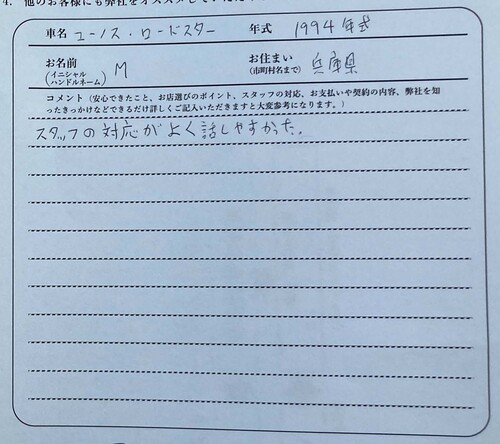 4. 他のお客様にも弊社をオススメしていただ
車名 ユーノス・ロードスター 年式 1994年式
お名前 M お住まい 兵庫県
(イニシャル (市町村名まで)
ハンドルネーム)
コメント（安心できたこと、お店選びのポイント、スタッフの対応、お支払いや契約の内容、弊社を知
ったきっかけなどできるだけ詳しくご記入いただきますと大変参考になります。）
スタッフの対応がよく話しやすかった。